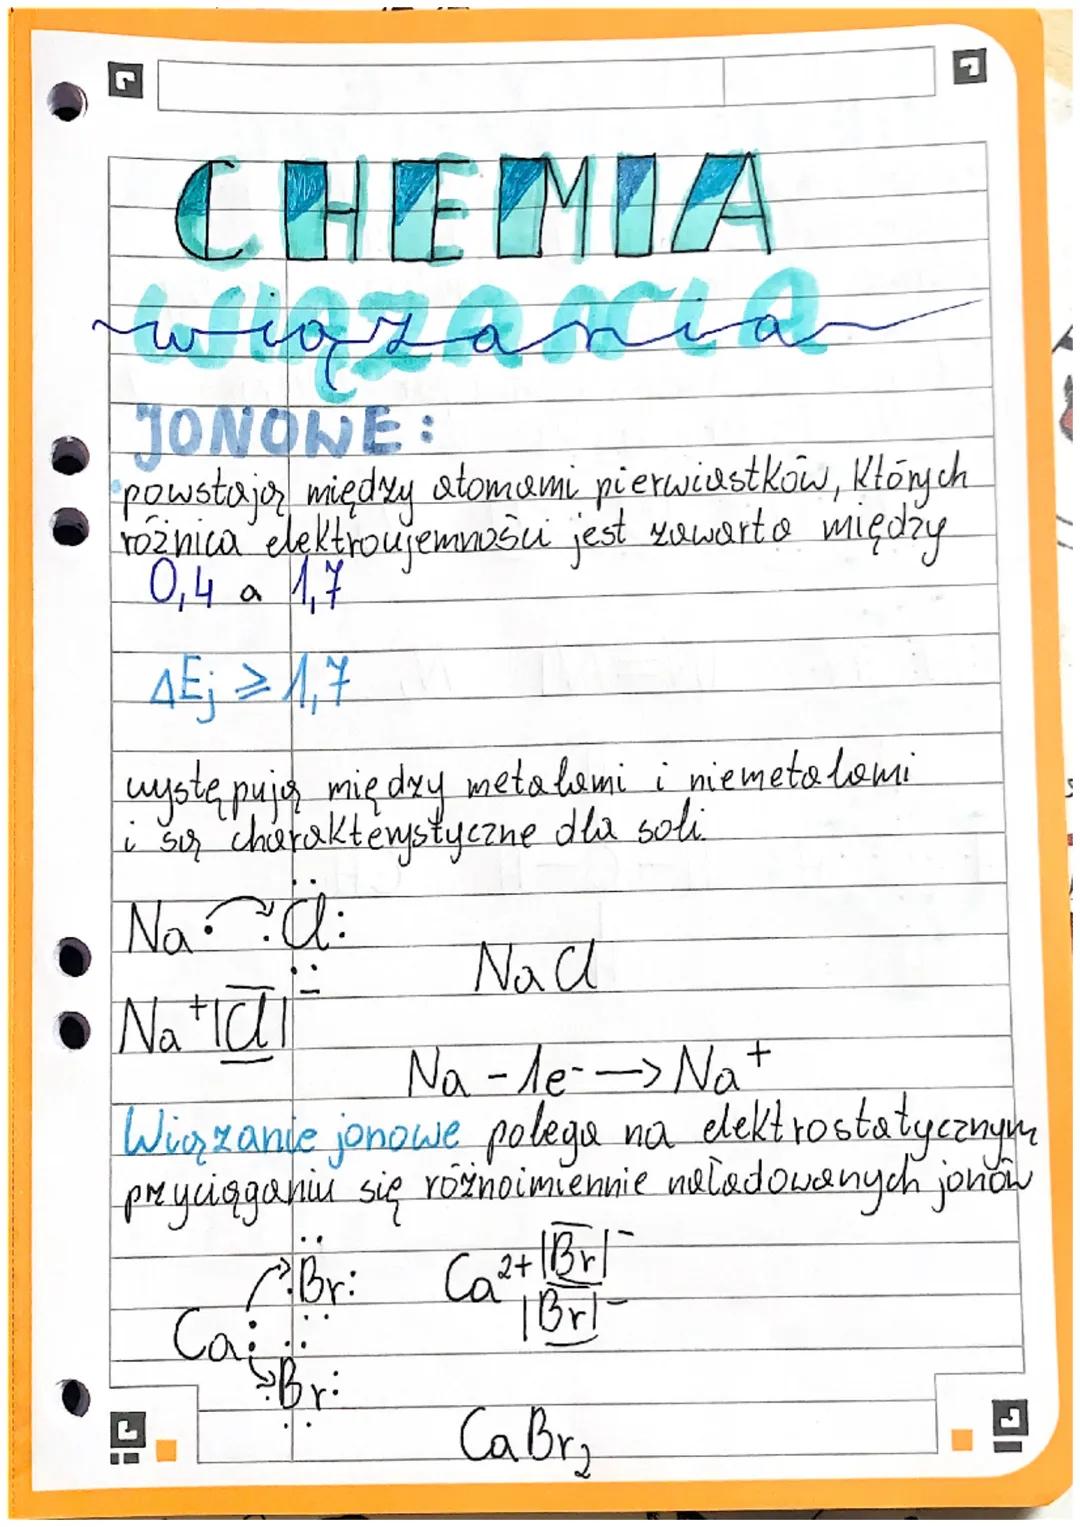 CHEMIA
wiązania
JONOWE:
powstają między atomami pierwiastków, których
różnica elektroujemności jest zawarta między
0,4 a 1,7
ΔEj ≥ 1,7
występują między metalami i niemetalami
i są charakterystyczne dla soli.
Na· :Cl:
NaCl
Na⁺|Cl|⁻
Na - 1e⁻ → Na⁺
Wiązanie jonowe polega na elektrostatycznym
przyciąganiu się różnoimiennie naładowanych jonów
:Br: Ca²⁺|Br|⁻
Ca: |Br|⁻
:Br:
CaBr₂